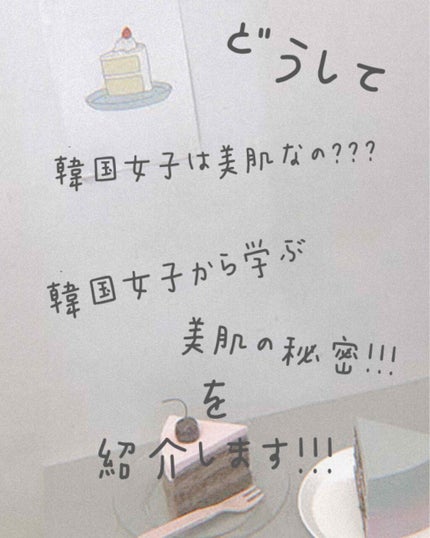 どうして
韓国女子は美肌なの???
韓国女子から学ぶ
美肌の秘密!!!
を
紹介します!!!